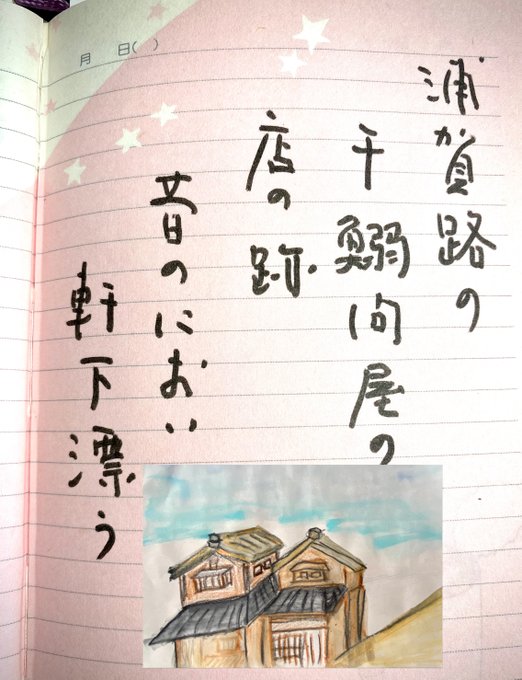 月 日( )
浦賀路の
干鰯問屋の
店の跡
昔のにおい
軒下漂う